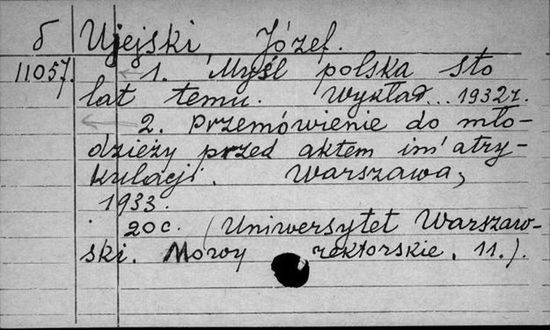 б Ujejski, Józef.
11057. 1. Myśl polska sto
lat temu. Wykład... 1932 r.
2. Przemówienie do mło-
dzieży przed aktem imatry-
kulacji. Warszawa,
1933.
20 c. (Uniwersytet Warszaw-
ski. Mowy rektorskie. 11.).